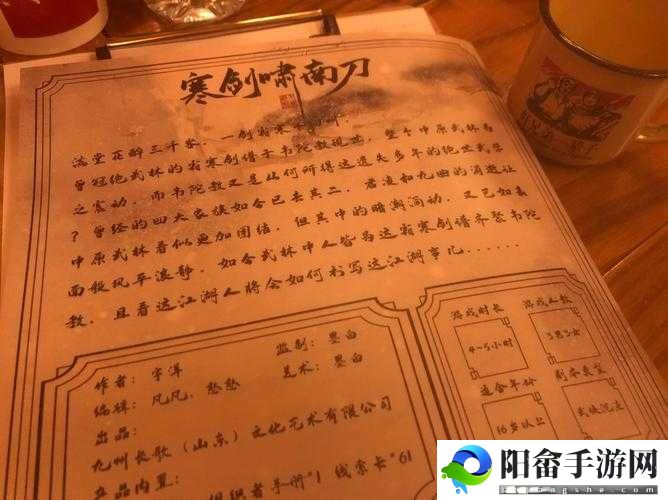 寒剑啸南刀
满堂花醉三千客，一剑霜寒
曾冠绝武林的霜寒剑谱于韦陀教现世，整个中原武林为
之震动，而韦陀教又是从何所得这遗失多年的绝世武学
？曾经的四大家族如今已去其二，君凌和九曲的消逝让
中原武林看似更加团结，但其中的暗潮涌动，又已如表
面般风平浪静，如今武林中人皆为这霜寒剑谱齐聚韦陀
教，且看这江湖人将会如何书写这江湖事儿......
作者：宇洋
监制：墨白
编辑：凡凡、愁愁
美术：墨白
出品：
九州长歌（山东）文化艺术有限公司
产品内置：
组织者手册*1 线索卡*61
游戏时长
4~5小时
游戏人数
3男3女
适合年份
16岁以上
剧本类型
武侠沉浸
阳龠手游网